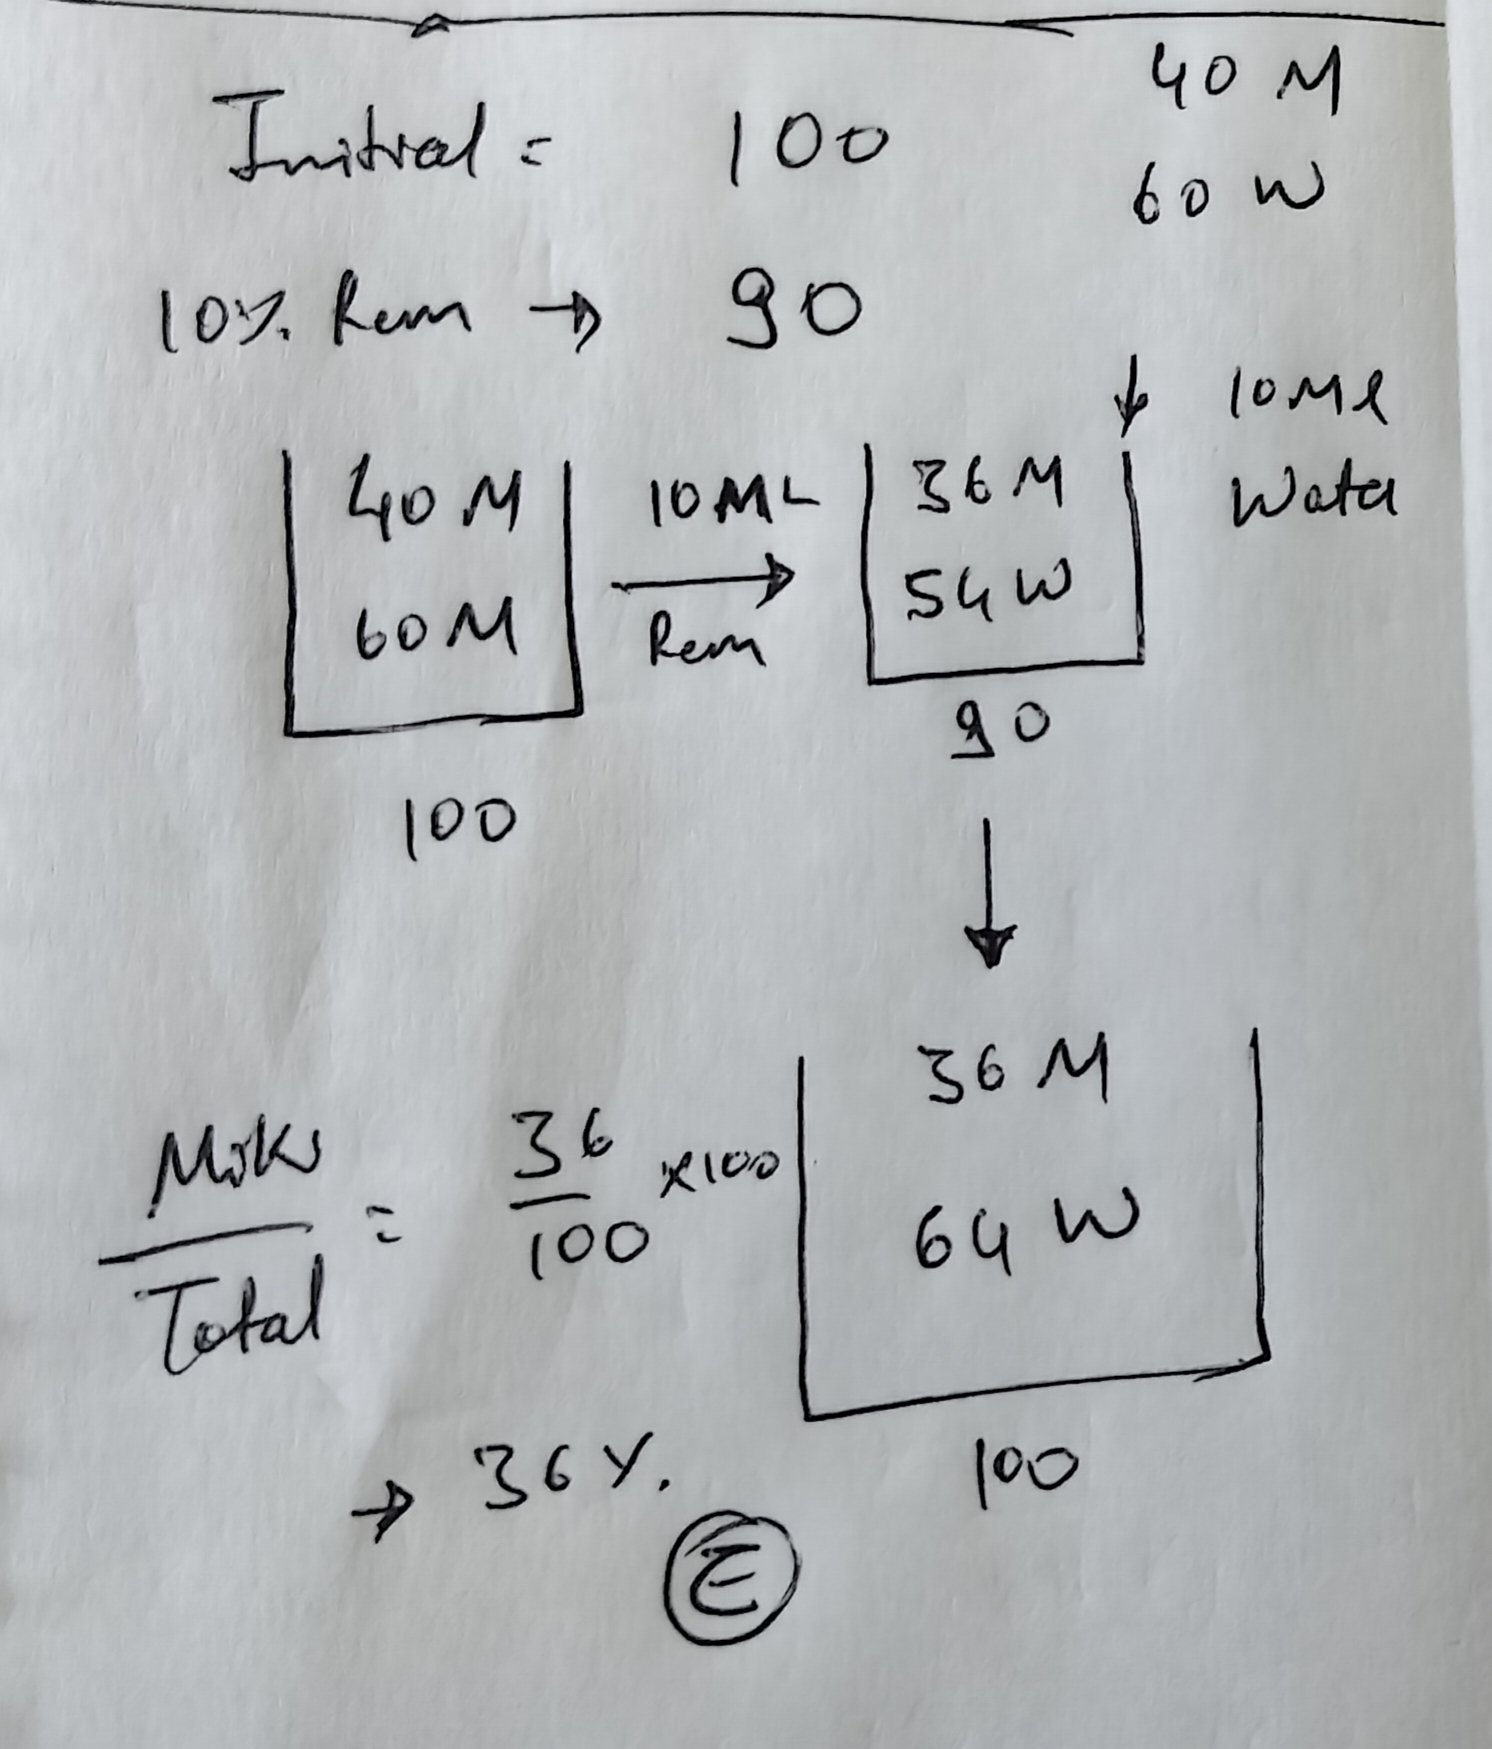 40 M
Initial = 100
60 W
10% Rem → 90
↓ 10Ml
Water
40M
60M
100
10ML
→
Rem
36M
54W
90
↓
36M
64W
100
Milk
Total
= 36/100 ×100
→ 36%.
E